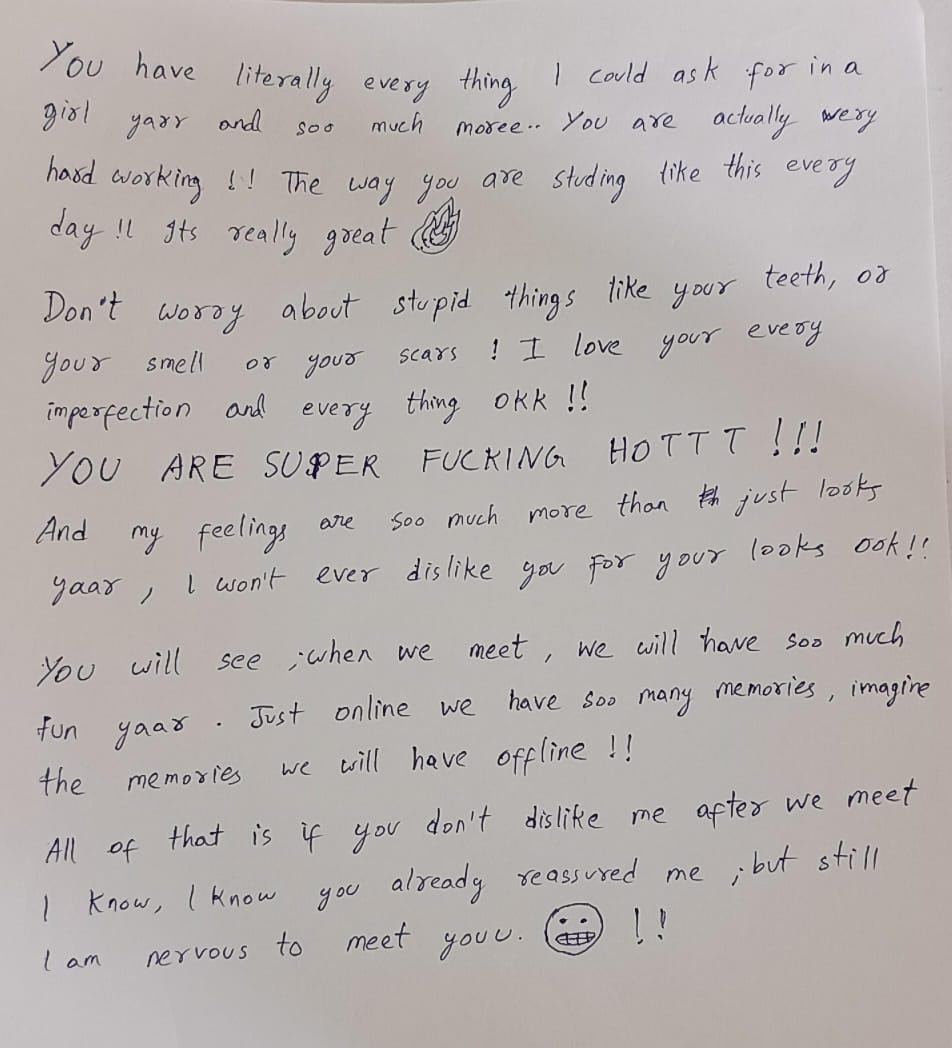 You have literally every thing I could ask for in a
girl yarr and soo much moree.. You are actually very
hard working !! The way you are studing like this every
day !! Its really great
Don't worry about stupid things like your teeth, or
your smell or your scars ! I love your every
imperfection and every thing okk !!
YOU ARE SUPER FUCKING HOTTT !!!
And my feelings are soo much more than th just looks
yaar , I won't ever dislike you for your looks ook !!
You will see ; when we meet , we will have soo much
fun yaar . Just online we have soo many memories , imagine
the memories we will have offline !!
All of that is if you don't dislike me after we meet
I know, I know you already reassured me ; but still
I am nervous to meet youu. !!